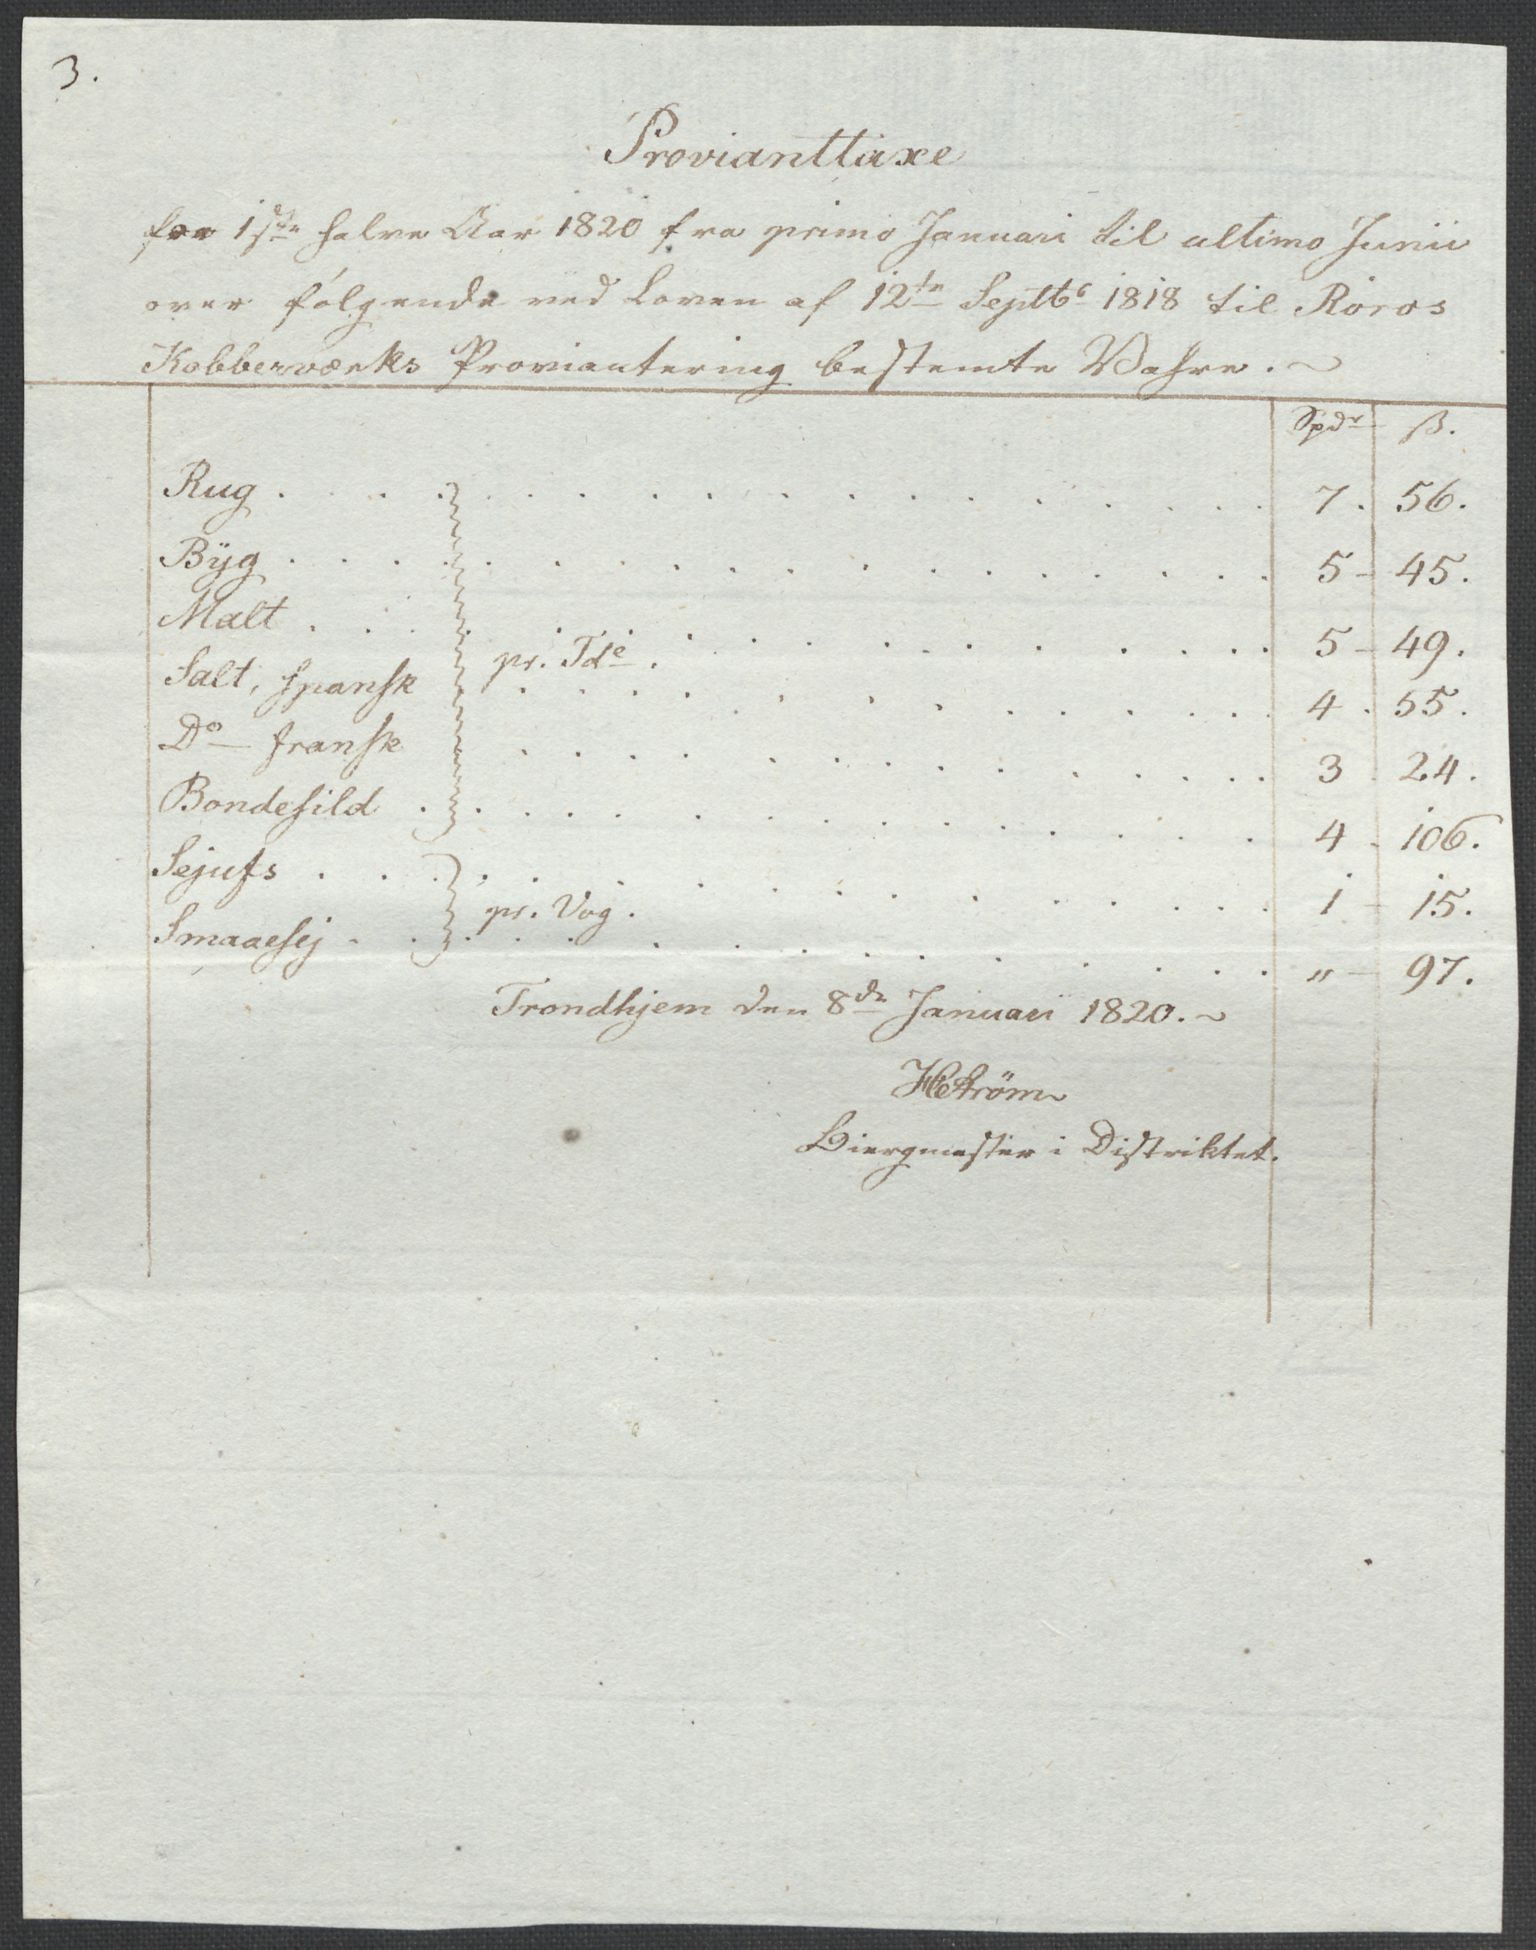 3.
Provianttaxe
for 1ste halve Aar 1820 fra primo Januari til ultimo Junii
over følgende ved Loven af 12te Septbr 1818 til Røros
Kobberværks Proviantering bestemte Vahre. ~
Spdr ß.
Rug . . . . 7. 56.
Byg . . . . 5 - 45.
Malt . . . . 5 - 49.
pr. Tde.
Salt, spansk . . . . 4. 55.
Do fransk . . . . 3. 24.
Bondesild . . . . 4 - 106.
Sejufs . . . . 1 - 15.
pr. Vog.
Smaaesej . . . . " - 97.
Trondhjem den 8de Januari 1820. ~
HStröm
Biergmester i Distriktet.